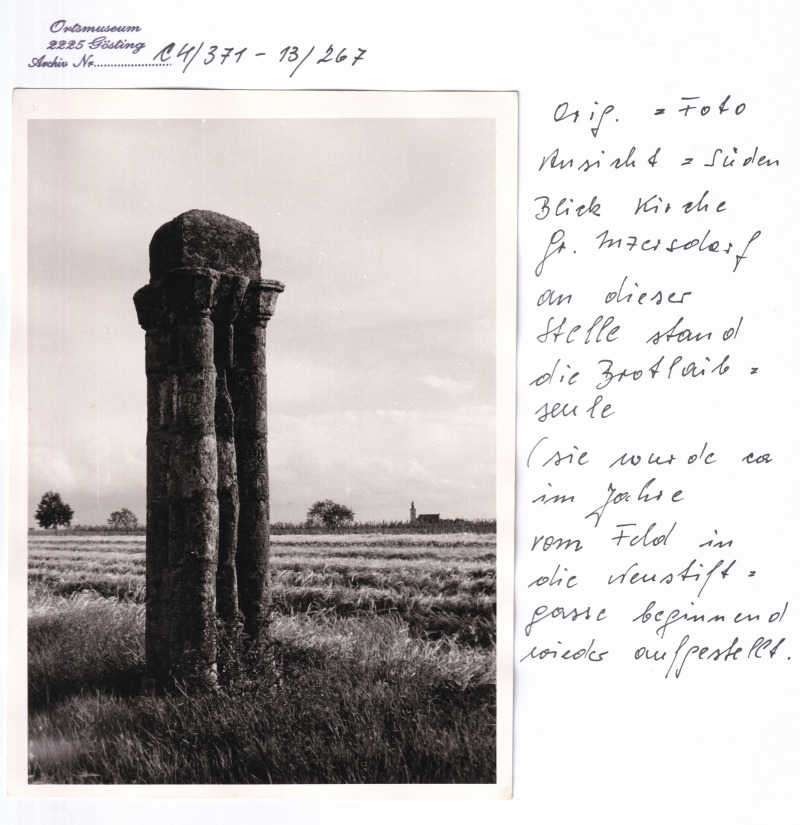 Ortsmuseum
2225 Gösting
Archiv Nr. C4/371 - 13/267
Orig. = Foto
Ansicht = Süden
Blick Kirche
Gr. Inzersdorf
an dieser
Stelle stand
die Brotlaib =
seule
(sie wurde ca
im Jahre
vom Feld in
die Neustift =
gasse beginnend
wieder aufgestellt.